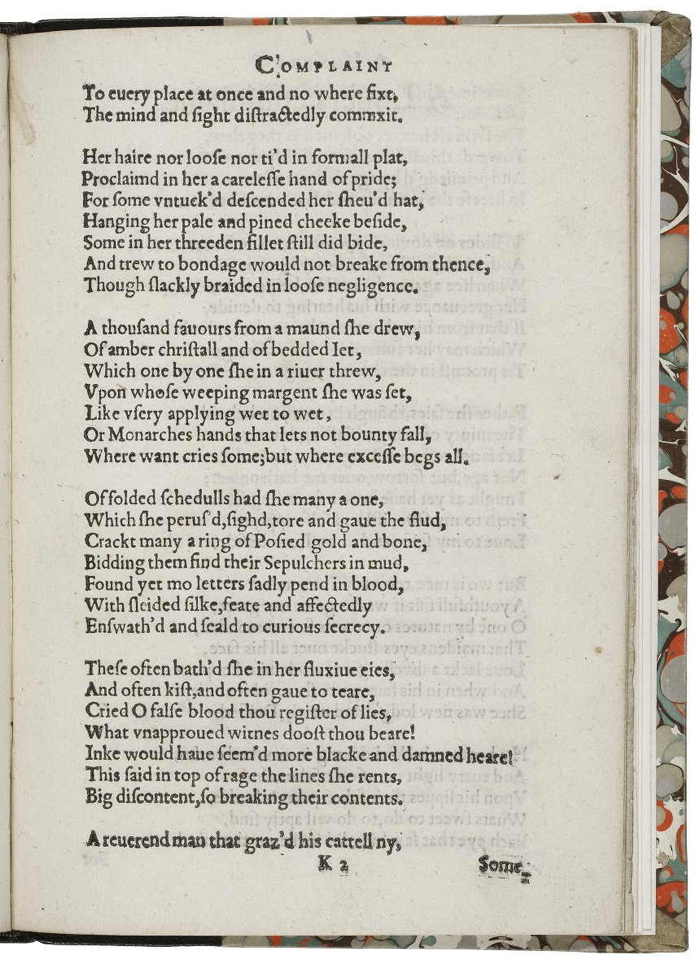 COMPLAINT
To euery place at once and no where fixt,
The mind and ſight diſtractedly commxit.
Her haire nor looſe nor ti'd in formall plat,
Proclaimd in her a careleſſe hand of pride;
For ſome vntuck'd deſcended her ſheu'd hat,
Hanging her pale and pined cheeke beſide,
Some in her threeden fillet ſtill did bide,
And trew to bondage would not breake from thence,
Though ſlackly braided in looſe negligence.
A thouſand fauours from a maund ſhe drew,
Of amber chriſtall and of bedded Iet,
Which one by one ſhe in a riuer threw,
Vpon whoſe weeping margent ſhe was ſet,
Like vſery applying wet to wet,
Or Monarches hands that lets not bounty fall,
Where want cries ſome;but where exceſſe begs all.
Of folded ſchedulls had ſhe many a one,
Which ſhe peruſ'd,ſighd,tore and gaue the flud,
Crackt many a ring of Poſied gold and bone,
Bidding them find their Sepulchers in mud,
Found yet mo letters ſadly pend in blood,
With ſleided ſilke,feate and affectedly
Enſwath'd and ſeald to curious ſecrecy.
Theſe often bath'd ſhe in her fluxiue eies,
And often kiſt,and often gaue to teare,
Cried O falſe blood thou regiſter of lies,
What vnapproued witnes dooſt thou beare!
Inke would haue ſeem'd more blacke and damned heare!
This ſaid in top of rage the lines ſhe rents,
Big diſcontent,ſo breaking their contents.
A reuerend man that graz'd his cattell ny,
K 2 Some-